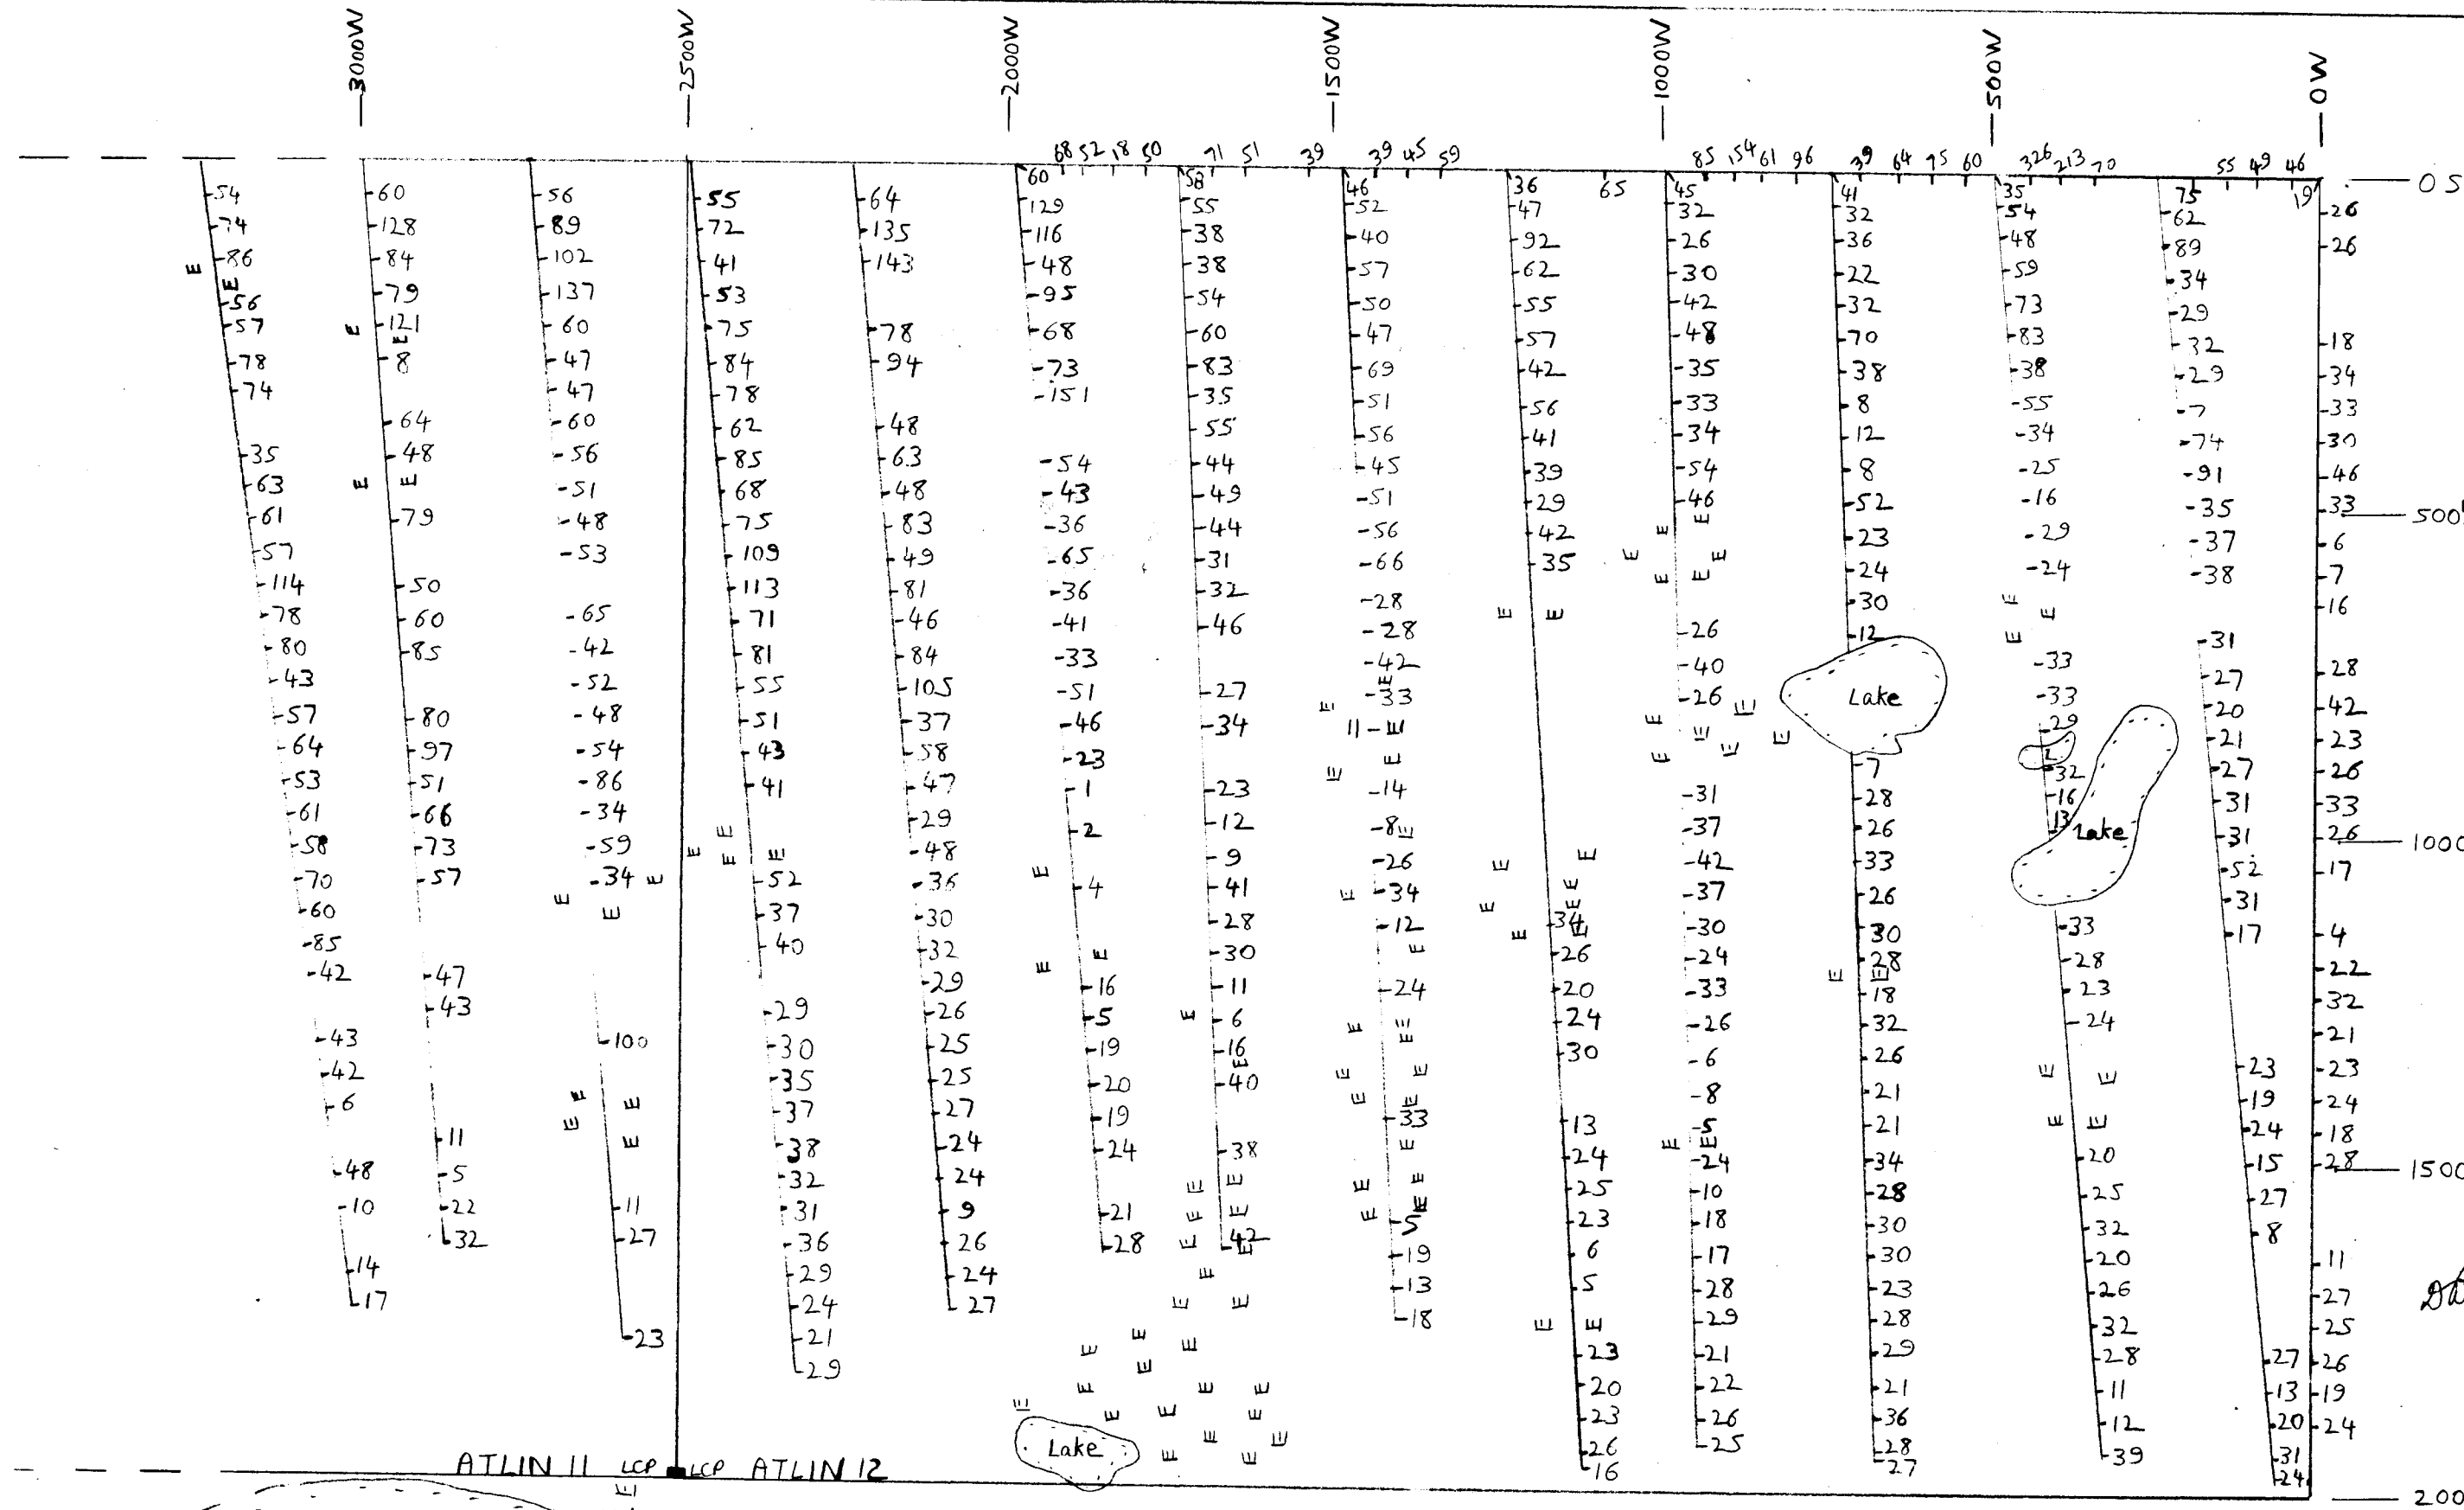 3000W 2500W 2000W 1500W 1000W 500W 0W
68 52 18 50 71 51 39 39 45 59 85 154 61 96 39 64 75 60 326 213 70 55 49 46
0S
54
74
86
E
E
56
57
78
74
35
63
61
57
114
78
80
43
57
64
53
61
58
70
60
85
42
43
42
6
48
10
14
17
60
128
84
79
121
8
64
48
79
50
60
85
80
97
51
66
73
57
47
43
11
5
22
32
56
89
102
137
60
47
47
60
56
51
48
53
65
42
52
48
54
86
34
59
34
100
11
27
23
55
72
41
53
75
84
78
62
85
68
75
109
113
71
81
55
51
43
41
52
37
40
29
30
35
37
38
32
31
36
29
24
21
29
64
135
143
78
94
48
63
48
83
49
81
46
84
105
37
58
47
29
48
36
30
32
29
26
25
25
27
24
24
9
26
24
27
60
129
116
48
95
68
73
151
54
43
36
65
36
41
33
51
46
23
1
2
4
16
5
19
20
19
24
21
28
58
55
38
38
54
60
83
35
55
44
49
44
31
32
46
27
34
23
12
9
41
28
30
11
6
16
40
38
42
46
52
40
57
50
47
69
51
56
45
51
56
66
28
28
42
33
11
14
8
26
34
12
24
33
5
19
13
18
36
47
92
62
55
57
42
56
41
39
29
42
35
34
26
20
24
30
13
24
25
23
6
5
23
20
23
26
16
65
45
32
26
30
42
48
35
33
34
54
46
26
40
26
31
37
42
37
30
24
33
26
6
8
5
24
10
18
17
28
29
21
22
26
25
41
32
36
22
32
70
38
8
12
8
52
23
24
30
12
Lake
7
28
26
33
26
30
28
18
32
26
21
21
34
28
30
30
23
28
29
21
36
28
27
35
54
48
59
73
83
38
55
34
25
16
29
24
33
33
29
L
32
16
13
Lake
33
28
23
24
20
25
32
20
26
32
28
11
12
39
75
62
89
34
29
32
29
7
74
91
35
37
38
31
27
20
21
27
31
31
52
31
17
23
19
24
15
27
8
27
13
20
31
24
19
26
26
18
34
33
30
46
33
6
7
16
28
42
23
26
33
26
17
4
22
32
21
23
24
18
28
11
27
25
26
19
24
500
1000
1500
200
Lake
ATLIN 11 LCP LCP ATLIN 12